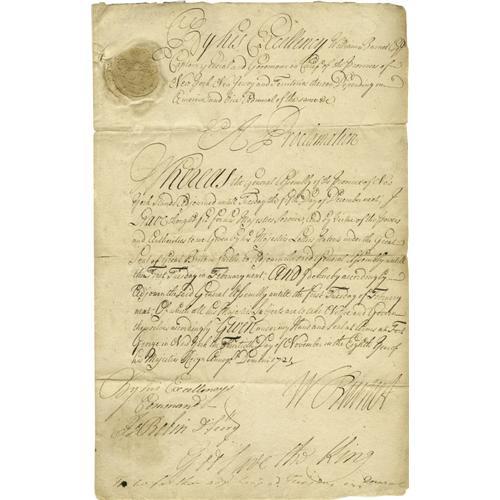 By his Excellency William Burnet Esqr
Captain General and Governour in Chief of the Provinces of
New York, New Jersey and Territories thereon Depending in
America and Vice Admiral of the same &c
A Proclamation
Whereas the General Assembly of the Province of New
York stands Adjourned untill Tuesday the day of December next, I
Have thought fit for his Majesties Service, and by Virtue of the Powers
and Authorities to me Given by his Majesties Letters Patents under the Great
Seal of Great Britain further to Adjourn the said General Assembly untill
the First Tuesday in February next And I do hereby accordingly
Adjourn the said General Assembly untill the first Tuesday of February
next Of which all his Majesties Subjects are to take Notice and Govern
themselves accordingly Given under my Hand and Seal at Arms at Fort
George in New York the Thirtieth day of November in the Eighth Year of
his Majesties Reign Annoq Domini 1721
W Burnet
By his Excellencys
Command
God save the King